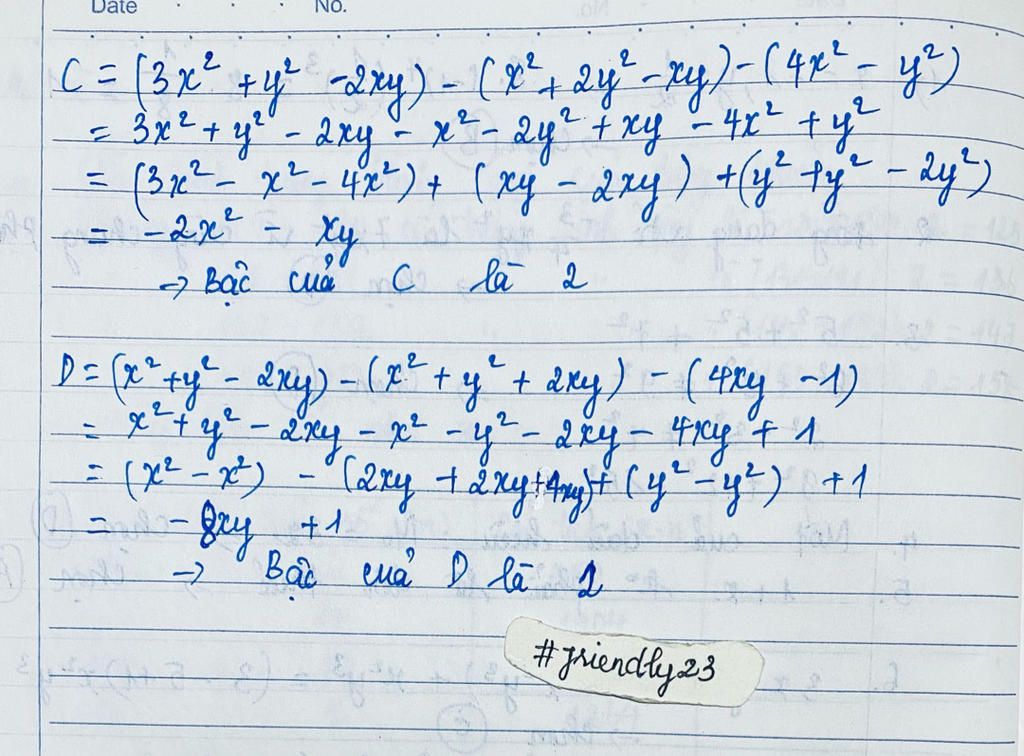 Date No.
C = (3x² + y² - 2xy) - (x² + 2y² - xy) - (4x² - y²)
= 3x² + y² - 2xy - x² - 2y² + xy - 4x² + y²
= (3x² - x² - 4x²) + (xy - 2xy) + (y² + y² - 2y²)
= -2x² - xy
→ Bậc của C là 2
D = (x² + y² - 2xy) - (x² + y² + 2xy) - (4xy - 1)
= x² + y² - 2xy - x² - y² - 2xy - 4xy + 1
= (x² - x²) - (2xy + 2xy + 4xy) + (y² - y²) + 1
= -8xy + 1
→ Bậc của D là 2
#friendly23